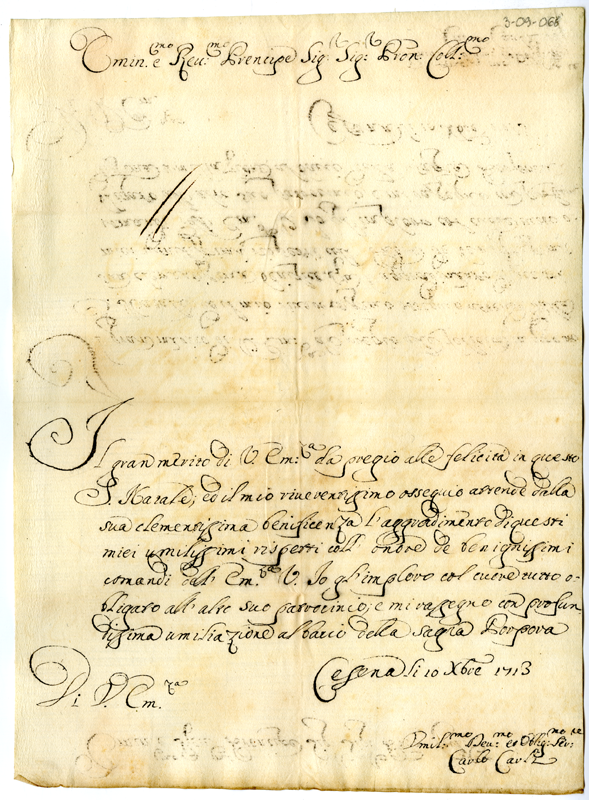 3-09-068
Emin.e^mo Rev:^mo Prencipe Sig:^r Sig:^r Pron: Coll:^mo
Il gran merito di V. Em:^za da pregio alle felicità in questo
S. Natale; ed il mio riverentissimo ossequio attende dalla
sua clementissima beneficenza l'aggradimento di questi
miei umilissimi rispetti coll' onore de benignissimi
comandi dall' Em.^za V. Io gl' imploro col cuore tutto o-
bligato all' alto suo patrocinio; e mi rassegno con profun-
dissima umiliazione al baccio della Sagra Porpora
Cesena li 10 Xbre 1713
Di V. Em.^za
Umil:^mo Dev:^mo et Oblig:^mo Ser:^re
Carlo